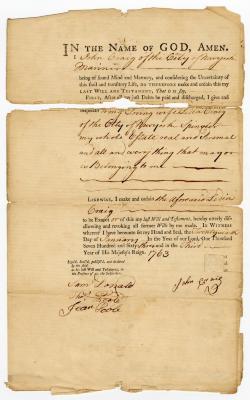 IN THE NAME OF GOD, AMEN.
I John Craig of the City of Newyork
Marriner
being of sound Mind and Memory, and considering the Uncertainty of
this frail and transitory Life, DO THEREFORE make and ordain this my
LAST WILL AND TESTAMENT, That is to say,
FIRST, After all my just Debts be paid and discharged, I give and
my Loving wife
of the City of Newyork
my whole Estate real and Personal
and all and every thing that may or
Belonging to me
LIKEWISE, I make and ordain the aforesaid
Craig
to be Execut or of this my last Will and Testament, hereby utterly disallowing and revoking all former Wills by me made. IN WITNESS
whereof I have hereunto set my Hand and Seal, the
Day of January In the Year of our Lord, One Thousand
Seven Hundred and Sixty three and in the Third
Year of His Majesty's Reign. 1763
Signed, Sealed, publish'd, and declared
by the said
as his last Will and Testament, in
the Presence of us the Subscribers.
John Craig
Sam Donald
Poole
Jean Poole